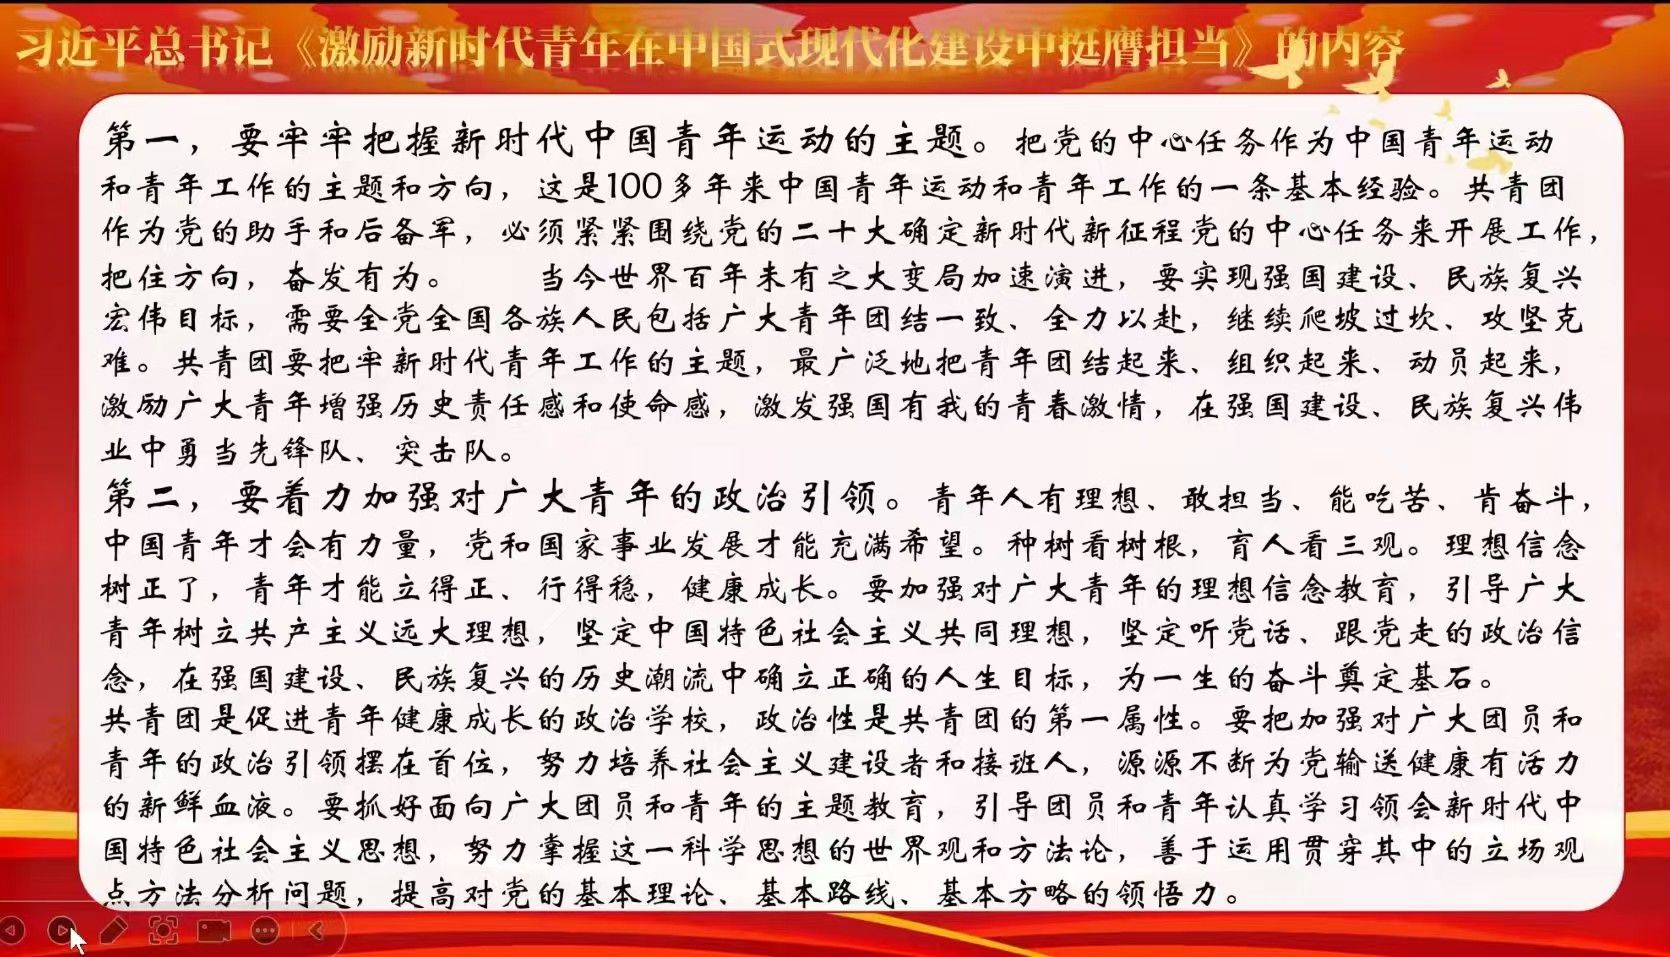 习近平总书记《激励新时代青年在中国式现代化建设中挺膺担当》的内容
第一，要牢牢把握新时代中国青年运动的主题。把党的中心任务作为中国青年运动
和青年工作的主题和方向，这是100多年来中国青年运动和青年工作的一条基本经验。共青团
作为党的助手和后备军，必须紧紧围绕党的二十大确定新时代新征程党的中心任务来开展工作，
把住方向，奋发有为。 当今世界百年未有之大变局加速演进，要实现强国建设、民族复兴
宏伟目标，需要全党全国各族人民包括广大青年团结一致、全力以赴，继续爬坡过坎、攻坚克
难。共青团要把牢新时代青年工作的主题，最广泛地把青年团结起来、组织起来、动员起来，
激励广大青年增强历史责任感和使命感，激发强国有我的青春激情，在强国建设、民族复兴伟
业中勇当先锋队、突击队。
第二，要着力加强对广大青年的政治引领。青年人有理想、敢担当、能吃苦、肯奋斗，
中国青年才会有力量，党和国家事业发展才能充满希望。种树看树根，育人看三观。理想信念
树正了，青年才能立得正、行得稳，健康成长。要加强对广大青年的理想信念教育，引导广大
青年树立共产主义远大理想，坚定中国特色社会主义共同理想，坚定听党话、跟党走的政治信
念，在强国建设、民族复兴的历史潮流中确立正确的人生目标，为一生的奋斗奠定基石。
共青团是促进青年健康成长的政治学校，政治性是共青团的第一属性。要把加强对广大团员和
青年的政治引领摆在首位，努力培养社会主义建设者和接班人，源源不断为党输送健康有活力
的新鲜血液。要抓好面向广大团员和青年的主题教育，引导团员和青年认真学习领会新时代中
国特色社会主义思想，努力掌握这一科学思想的世界观和方法论，善于运用贯穿其中的立场观
点方法分析问题，提高对党的基本理论、基本路线、基本方略的领悟力。